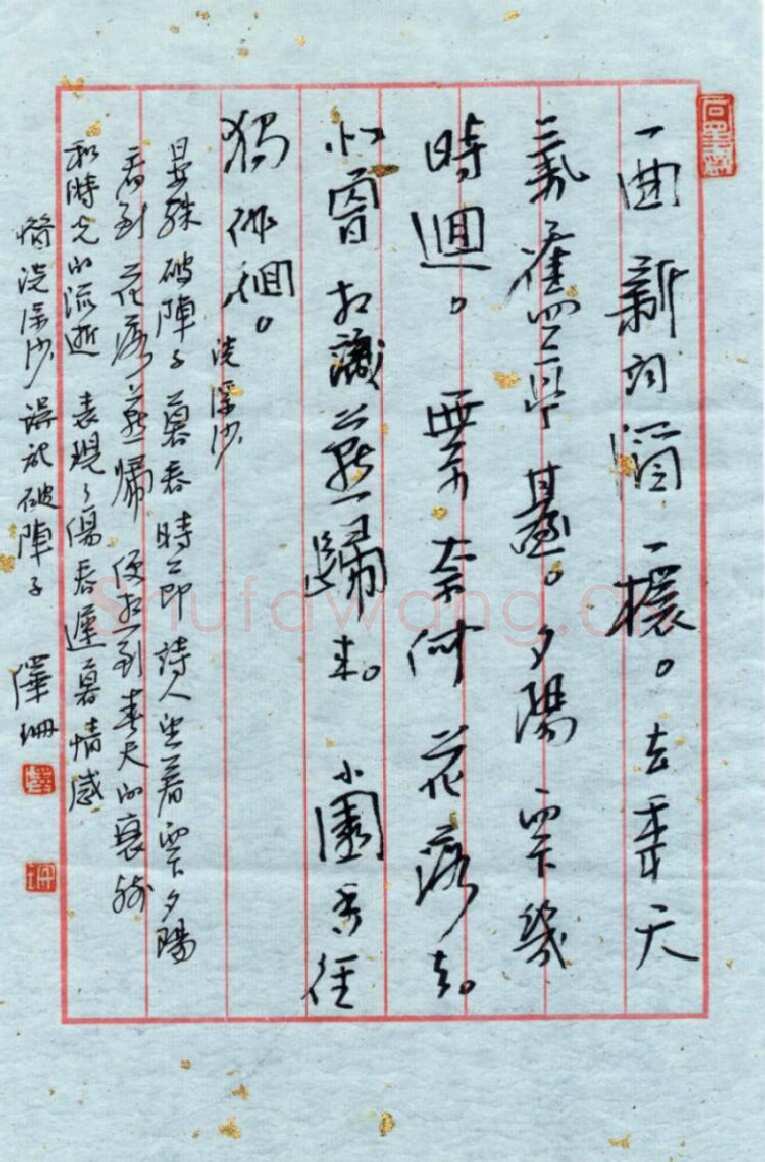 一曲新詞酒一櫰。去年天
氣舊亭臺。夕陽西下幾
時迴。無可奈何花落去。
似曾相識燕歸來。小園香徑
獨徘徊。
浣溪沙
晏殊破陣子暮春時節詩人望着西下夕陽
看到花落燕歸便想到春天的衰
和時光的流逝表現了傷春遲暮情感
浣溪沙誤於破陣子 澤珊
Shufawang.cn